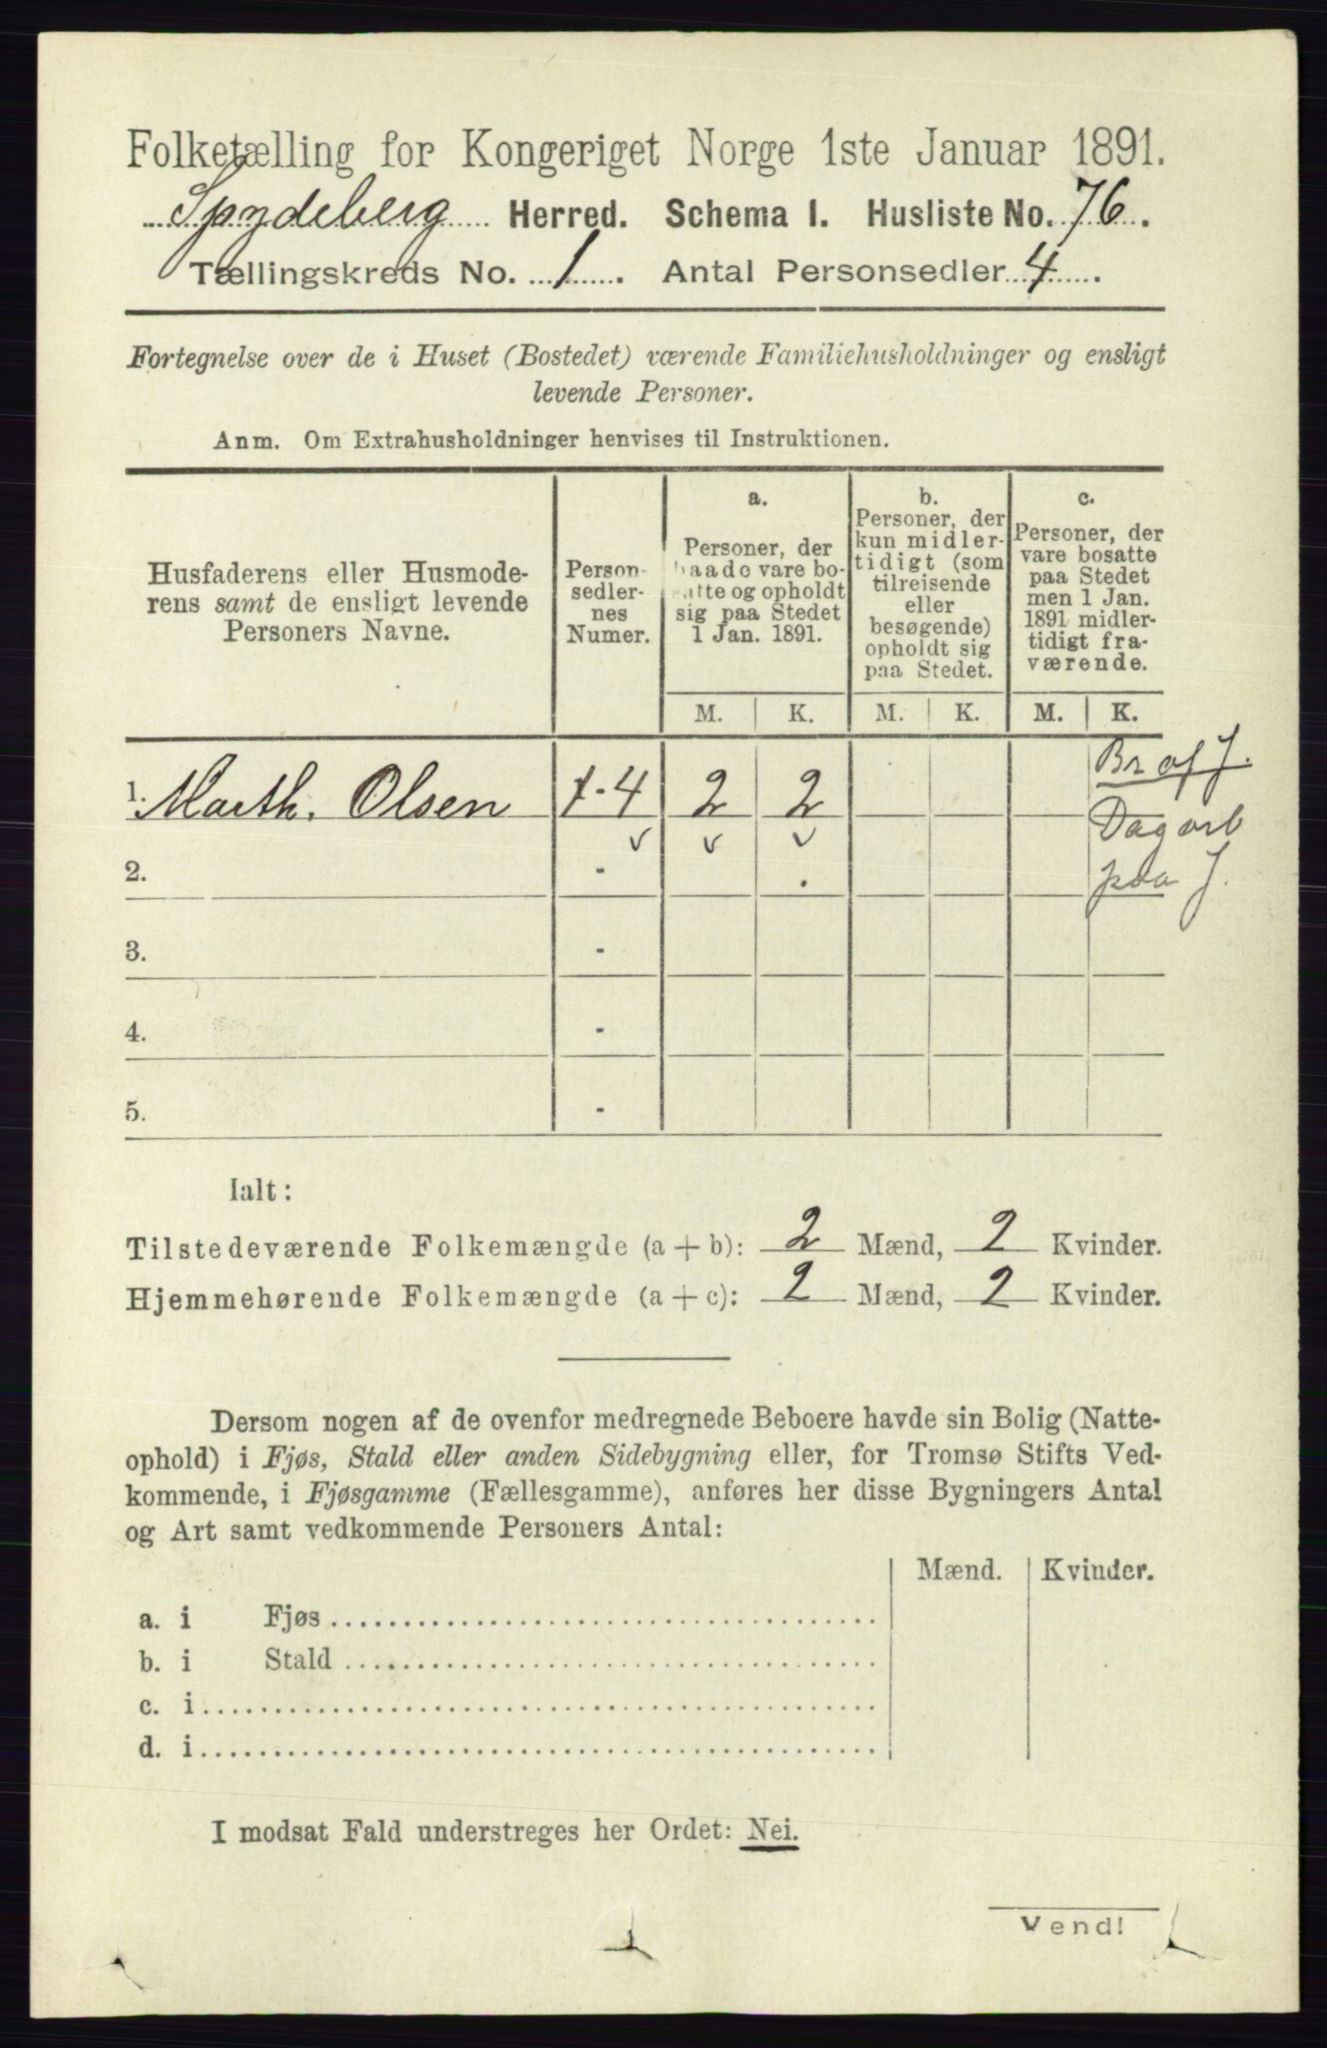 Folketælling for Kongeriget Norge 1ste Januar 1891.
Spydeberg Herred. Schema I. Husliste No. 76.
Tællingskreds No. 1. Antal Personsedler 4.
Fortegnelse over de i Huset (Bostedet) værende Familiehusholdninger og ensligt
levende Personer.
Anm. Om Extrahusholdninger henvises til Instruktionen.
Husfaderens eller Husmode-
rens samt de ensligt levende
Personers Navne.
Person-
sedler-
nes
Numer.
a.
Personer, der
baade vare bo-
satte og opholdt
sig paa Stedet
1 Jan. 1891.
b.
Personer, der
kun midler-
tidigt (som
tilreisende
eller
besøgende)
opholdt sig
paa Stedet.
c.
Personer, der
vare bosatte
paa Stedet
men 1 Jan.
1891 midler-
tidigt fra-
værende.
M. K. M. K. M. K.
1. Marth. Olsen 1-4 2 2
Br af J.
Dagarb
paa J.
2. -
3. -
4. -
5. -
Ialt:
Tilstedeværende Folkemængde (a + b): 2 Mænd, 2 Kvinder.
Hjemmehørende Folkemængde (a + c): 2 Mænd, 2 Kvinder.
Dersom nogen af de ovenfor medregnede Beboere havde sin Bolig (Natte-
ophold) i Fjøs, Stald eller anden Sidebygning eller, for Tromsø Stifts Ved-
kommende, i Fjøsgamme (Fællesgamme), anføres her disse Bygningers Antal
og Art samt vedkommende Personers Antal:
Mænd. Kvinder.
a. i Fjøs
b. i Stald
c. i
d. i
I modsat Fald understreges her Ordet: Nei.
Vend!